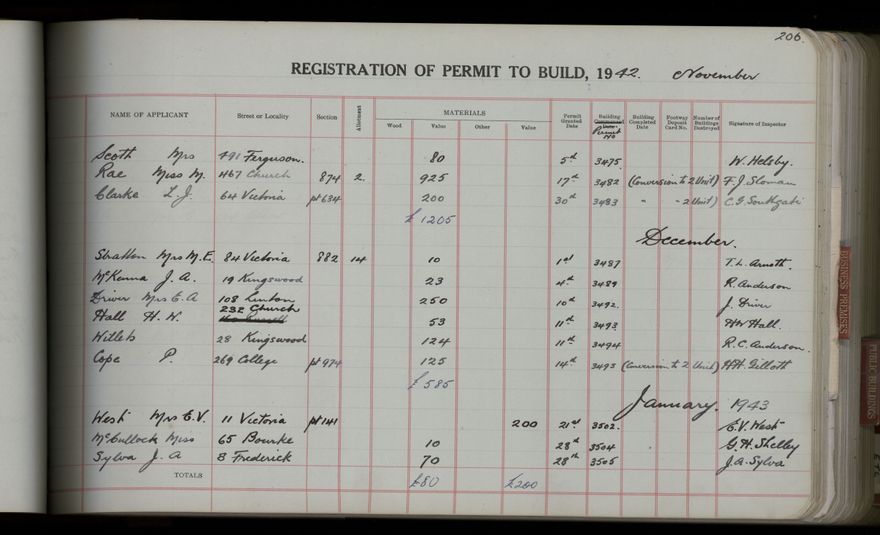 206
REGISTRATION OF PERMIT TO BUILD, 1942. November
NAME OF APPLICANT Street or Locality Section Allotment MATERIALS Wood Value Other Value Permit Granted Date Building Commenced Date Permit No Building Completed Date Footway Deposit Card No. Number of Buildings Destroyed Signature of Inspector
Scott Mrs 491 Ferguson. 80 5th 3475 W. Helsby.
Rae Miss M. 467 Church 874 2. 925 17th 3482 (Conversion to 2 Unit) F. J. Sloman
Clarke L. J. 64 Victoria pt 634 200 30th 3483 " " 2 Unit) C. G. Southgate
£ 1205
December.
Stratton Mrs M. E. 84 Victoria 882 14 10 1st 3487 T. L. Arnott.
McKenna J. A. 19 Kingswood 23 4th 3489 R. Anderson
Driver Mrs E. A 108 Linton 250 10th 3492. J. Driver
Hall H. W. 232 Church 53 11th 3493 HW Hall.
Willets 28 Kingswood 124 11th 3494 R. C. Anderson.
Cope P. 269 College pt 974 125 14th 3495 (Conversion to 2 Unit) HH. Gilloth
£ 585
January. 1943
West Mrs E. V. 11 Victoria pt 141 200 21st 3502. E. V. West
McCullock Miss 65 Bourke 10 28th 3504 G. H. Shelley
Sylva J. A 8 Frederick 70 28th 3505 J. A. Sylva
TOTALS £80 £200
BUSINESS PREMISES
PUBLIC BUILDINGS